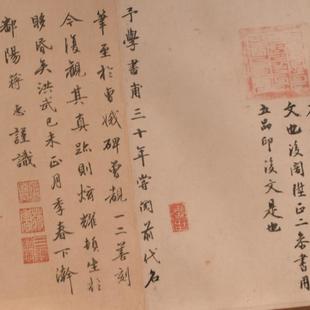 文也後闕陞正二条書用
五品印後文是也
予學書甫三十年嘗闻前代名
筆至於曹娥碑曾覩一二善刻
今復觀其真跡則炫耀頓生於
眵昏矣洪武己未正月季春下澣
鄱陽蔣 謹識